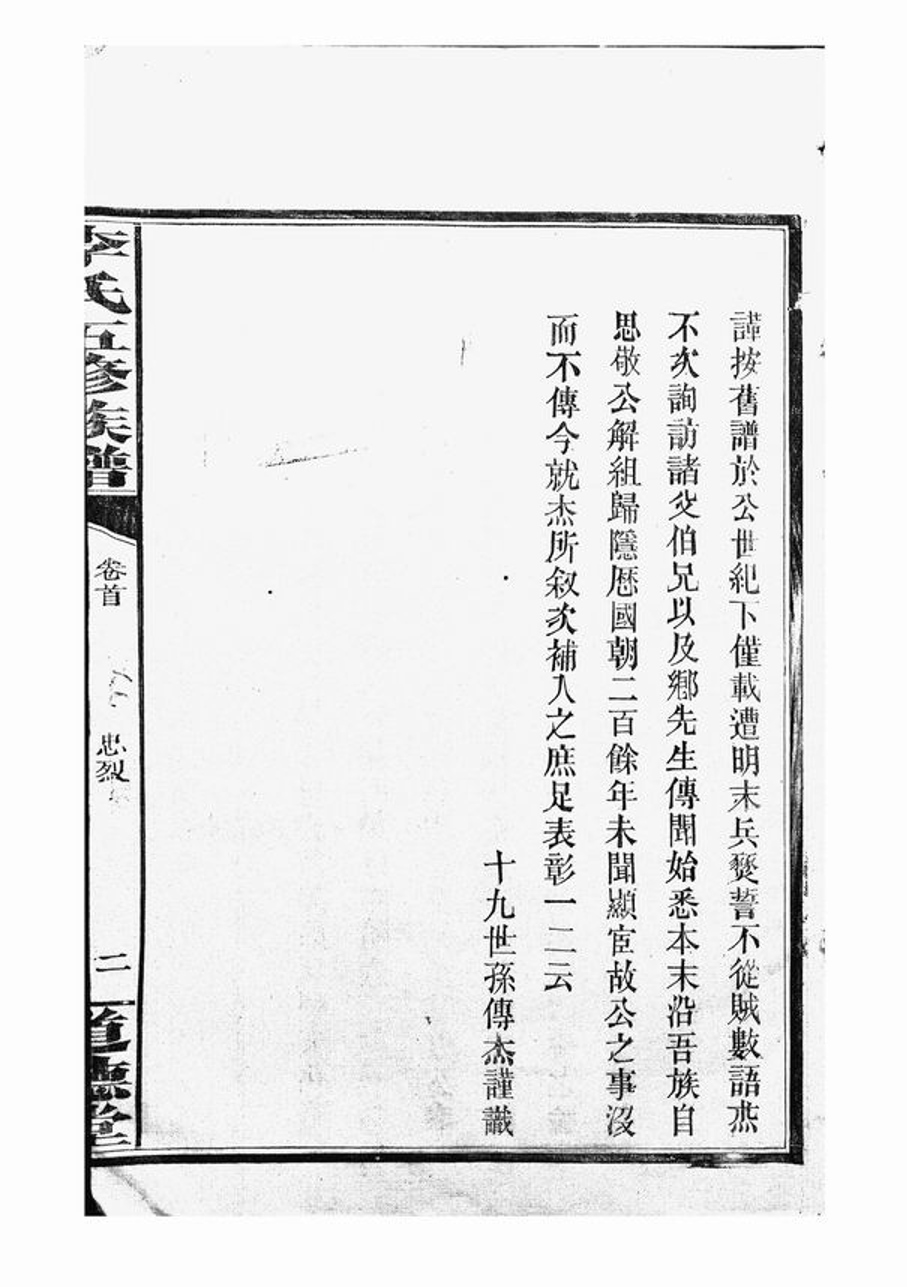 謹按舊譜於公世紀下僅載遭明末兵燹誓不從賊數語焘
不次詢訪諸父伯兄以及鄕先生傳聞始悉本末沿吾族自
思敬公解組歸隱歷國朝二百餘年未聞顯宦故公之事沒
而不傳今就杰所叙次補入之庶足表彰一二云
十九世孫傳杰謹識
李氏五修族譜
卷首
忠烈
二
道德堂